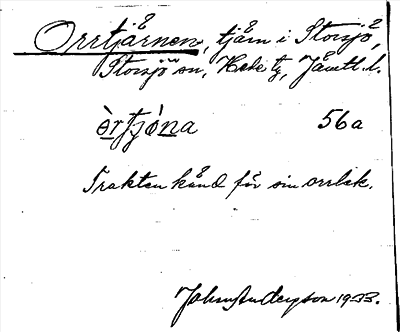 Orrtjärnen, tjärn i Storsjö,
Storsjö sn, Hede tg, Jämtl. l.
òrtjò̱na 56a
Trakten känd för sin orrlek.
Johan Anderson 1933.